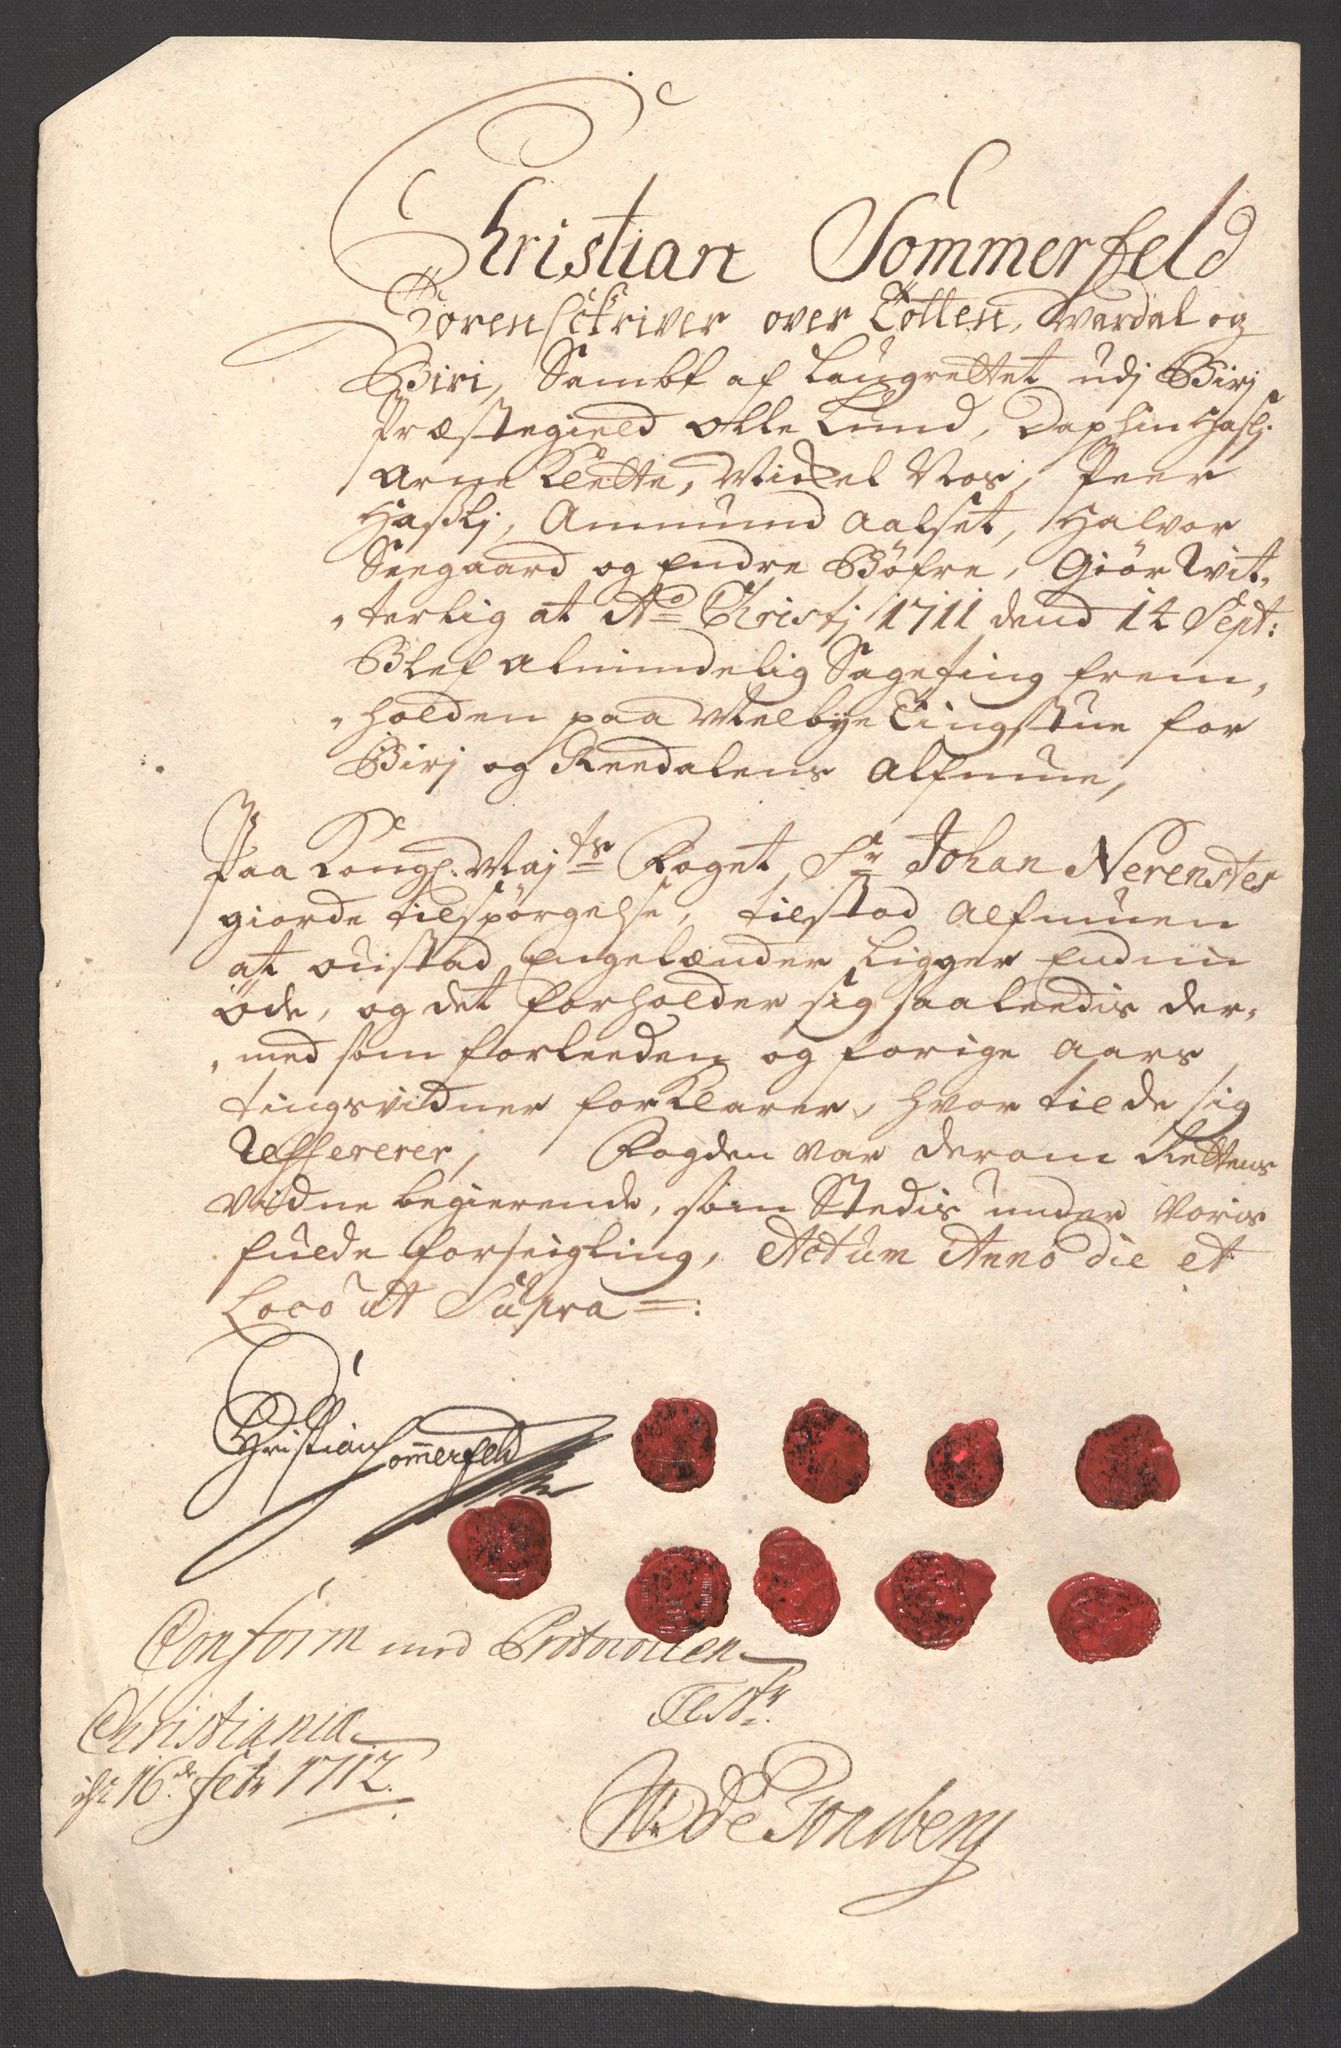 Christian Sommerfeld
Sorenschriver over Totten, Wardal og
Biri, Sambt af Laugrettet udj Birj
Præstegield Olle Lund, Daphin Haslj.
Arne Klette, Mickel Noes, Peer
Hasslj, Ammund Aalset, Halvor
Seegaard og Endre Böfre, Giör Wit,
terlig at Ao Christj 1711 dend 14 Sept:
Blef almindelig Sageting frem,
holden paa Melbye Tingstue for
Birj og Reedalens Almue,
Paa Kongl: Mayts Foget Sr Johan Nerenster
giorde tilspörgelse, tilstod Almuen
at Oustad Engelænder Ligger Endnu
Öde, og det forholder sig saaleedis der,
med som forleeden og forige Aars
tingsvidner forklarer, hvor til de sig
Refererer, Fogden var derom Rettens
vidne begierende, som Stedis under Voris
fulde forseigling, Actum Anno die et
Loco ut Supra =:
Christian Sommerfeld
Conform med Protocollen
Test:
Christiania
16de Feb 1712.
De Tonsberg